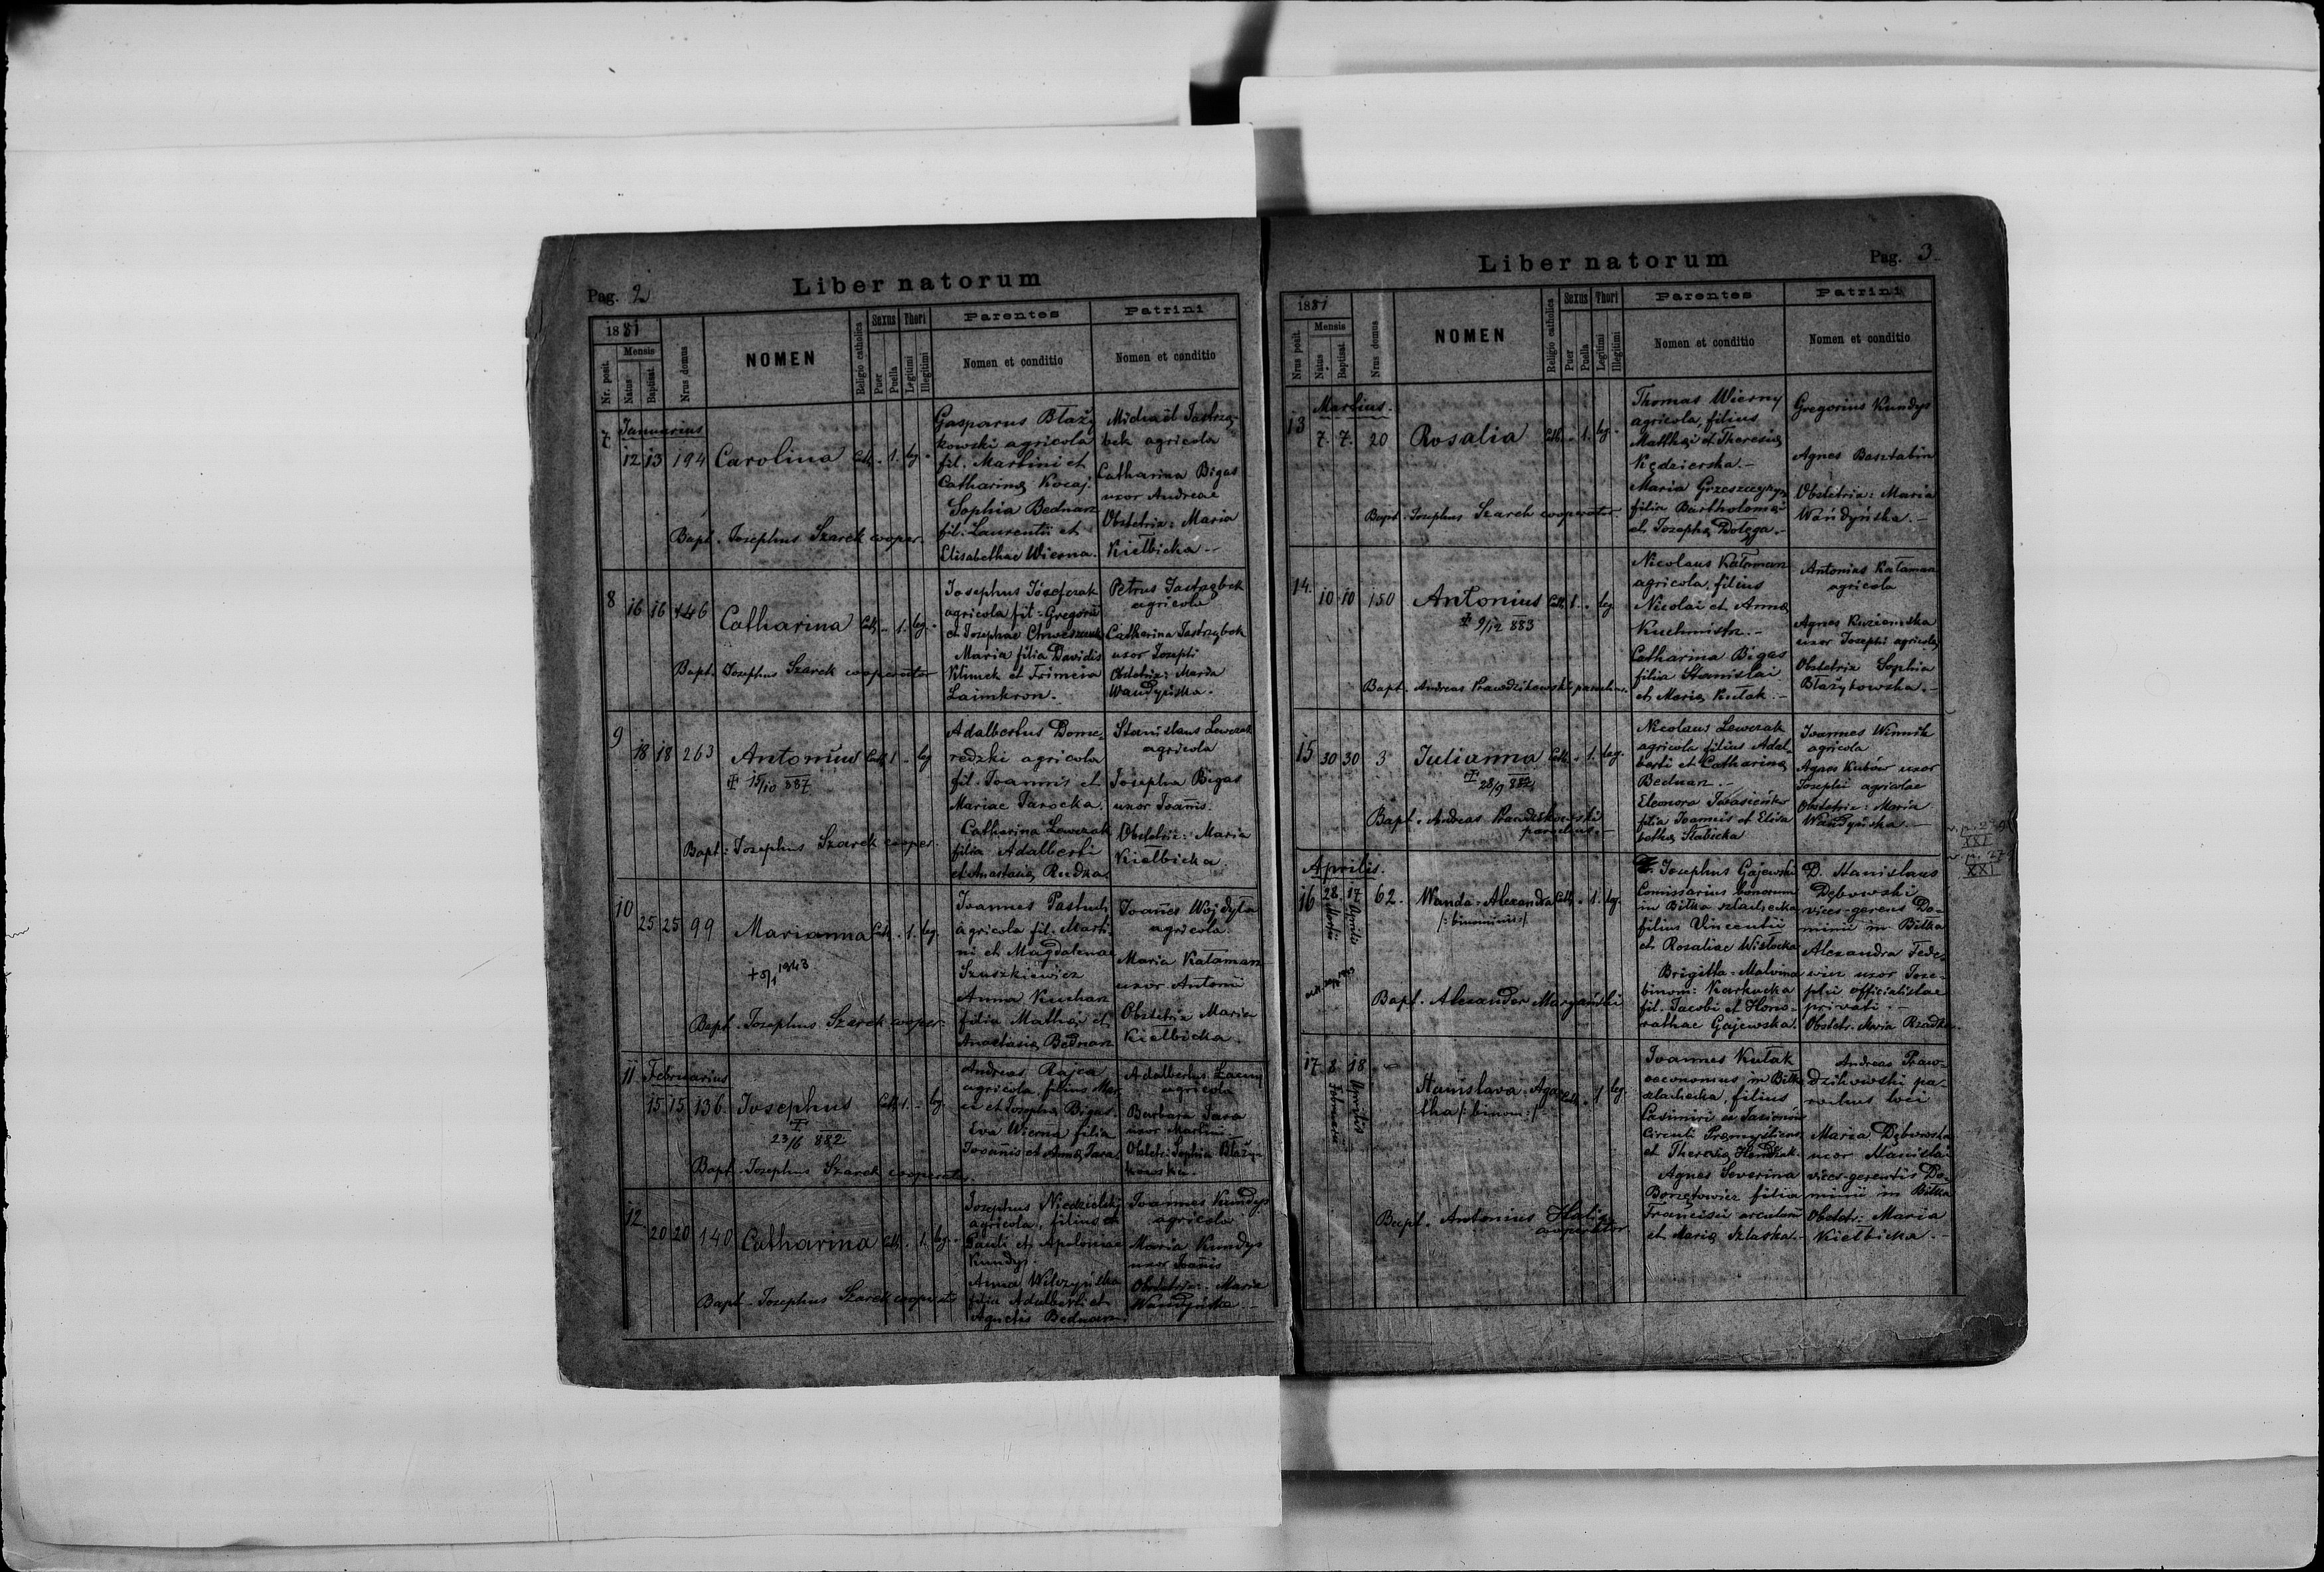 Pag. 2
Liber natorum
1881
Nr. posit.
Mensis
Natus
Baptisat.
Nrus domus
NOMEN
Religio catholica
Sexus
Puer
Puella
Thori
Legitimi
Illegitimi
Parentes
Nomen et conditio
Patrini
Nomen et conditio
7 Januarius
12 13 194 Carolina Cath. - 1. leg. -
Gasparus Błaży-
kowski agricola
fil. Martini et
Catharinæ Kocaj.
Sophia Bednarz
fil. Laurentii et
Elisabethae Wierna.
Michaël Jastrzę-
bek agricola
Catharina Bigas
uxor Andreae
Obstetrix: Maria
Kiełbicka. -
Bapt. Josephus Szarek cooper.
8 16 16 146 Catharina Cath. - 1. leg. -
Josephus Józefczak
agricola fil. Gregorii
et Josephae
Maria filia Davidis
Klimek et
Laimkron.
Petrus Jastrzębek
agricola
Catharina Jastrzębek
uxor Josephi
Obstetrix: Maria
Wandyńska.
Bapt. Josephus Szarek cooperator
9 18 18 263 Antonius Cath. 1 - leg
15/10 887
Adalbertus Dome-
redzki agricola
fil. Joannis et
Mariae Tarocka.
Catharina Lewczak
filia Adalberti
et Anastasiæ Rudka
Stanislaus Lewczak
agricola
Josepha Bigas
uxor Joanis.
Obstetrix: Maria
Kiełbicka.
Bapt: Josephus Szarek cooper.
10 25 25 99 Marianna Cath. - 1. leg.
+ 5/1 1943
Joannes Pastuch
agricola fil. Marti-
ni et Magdalenae
Szuszkiewicz
Anna Kuchar
filia Mathæi et
Anastasiæ Bednarz
Joannes Wojdyła
agricola.
Maria Kałaman
uxor Antonii
Obstetrix Maria
Kiełbicka.
Bapt. Josephus Szarek cooper.
11 Februarius
15 15 136. Josephus Cath. 1. - leg.
23/6 882
Andreas Rajca
agricola filius
et Josephæ Bigas.
Eva Wierna filia
Joannis et Annæ Jara.
Adalbertus
agricola
Barbara Jara
uxor Martini
Obstetr: Sophia Błaży-
kowska.
Bapt. Josephus Szarek cooperator.
12. 20 20 140 Catharina Cath. - 1. leg. -
Josephus Niedzielski
agricola, filius
Pauli et Apoloniae
Kundys.
Anna Wilczyńska
filia Adalberti et
Agnetis Bednarz.
Joannes Kundys
agricola
Maria Kundys
uxor Joanis
Obstetrix: Maria
Wandyńska -
Bapt. Josephus Szarek
Liber natorum
Pag. 3
1881
Nrus posit.
Mensis
Natus
Baptisat.
Nrus domus
NOMEN
Religio catholica
Sexus
Puer
Puella
Thori
Legitimi
Illegitimi
Parentes
Nomen et conditio
Patrini
Nomen et conditio
Martius.
13 7. 7. 20 Rosalia Cath. - 1. leg. -
Thomas Wierny
agricola, filius
Matthæi et Theresiæ
Kędzierska. -
Maria Grzeszczyszyn
filia Bartholomæi
et Josephæ Dołęga. -
Gregorius Kundys
Agnes Basztabin
Obstetrix: Maria
Wandyńska. -
Bapt. Josephus Szarek cooperator.
14. 10 10 150 Antonius Cath. 1. - leg
9/12 883
Nicolaus Kałaman
agricola, filius
Nicolai et Annæ
Kuchmistr. -
Catharina Bigas
filia Stanislai
et Mariæ Kułak. -
Antonius Kałaman
agricola
Agnes
uxor Josephi agricolæ
Obstetrix Sophia
Błażykowska. -
Bapt. Andreas Prawdzikowski parochus.
15 30 30 3 Julianna Cath. - 1. leg.
28/9 882
Nicolaus Lewczak
agricola filius Adal-
berti et Catharinæ
Bednarz. -
Eleonora
filia Joannis et Elisa
bethæ Słabicka
Joannes Winnik
agricola
Agnes Kubów uxor
Josephi agricolae
Obstetrix: Maria
Wandyńska. -
Bapt. Andreas Prawdzikowski
parochus. -
XXI
XXI
Aprilis.
16 28 Martii 17 Aprilis 62. Wanda-Alexandra Cath. - 1. leg.
/: binominis :/
Josephus Gajewski
Comissarius bonorum
in Biłka szlachecka
filius Vincentii
et Rosaliae Wisłocka
Brigitta-Malvina
binom: Karhucka
fil. Jacobi et Hono-
rathae Gajewska.
D. Stanislaus
Dębowski
vices-gerens Do-
minii in Biłka
Alexandra Fede-
wicz uxor Jose-
phi officialistae
privati. -
Obstetr. Maria Rzadka.
Bapt. Alexander Margański
17 8 Februarii 18 Aprilis - Stanislava-Aga-
tha /: binom: :/ Cath. - 1 leg.
Joannes Kułak
oeconomus in Biłka
szlachecka, filius
Casimiri ex Jasienów
Circuli Premysliens.
et Theresiæ
Agnes Severina
Borzętowicz filia
Francisci arcularii
et Mariæ Szlaska. -
Andreas Praw-
dzikowski pa-
rochus loci
Maria Dębowska
uxor Stanislai
vices-gerentis Do-
minii in Biłka
Obstetr: Maria
Kiełbicka. -
Bapt. Antonius
cooperator.